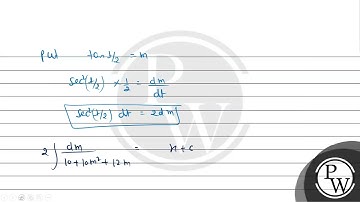 put tan t/2 = m
sec²(t/2) × 1/2 = dm/dt
sec²(t/2) dt = 2dm
2 ∫ dm/(10+10m²+12m) = x+c
PW